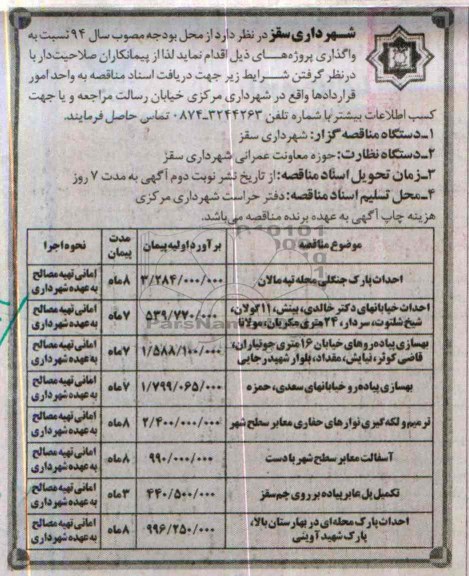 شهرداری سقز در نظر دارد از محل بودجه مصوب سال ۹۴ نسبت به
واگذاری پروژه‌های ذیل اقدام نماید لذا از پیمانکاران صلاحیت‌دار با
درنظر گرفتن شرایط زیر جهت دریافت اسناد مناقصه به واحد امور
قراردادها واقع در شهرداری مرکزی خیابان رسالت مراجعه و یا جهت
کسب اطلاعات بیشتر با شماره تلفن ۳۲۴۴۲۶۳-۰۸۷۴ تماس حاصل فرمایند.
۱-دستگاه مناقصه گزار: شهرداری سقز
۲-دستگاه نظارت: حوزه معاونت عمرانی شهرداری سقز
۳-زمان تحویل اسناد مناقصه: از تاریخ نشر نوبت دوم آگهی به مدت ۷ روز
۴-محل تسلیم اسناد مناقصه: دفتر حراست شهرداری مرکزی
هزینه چاپ آگهی به عهده برنده مناقصه می‌باشد.
موضوع مناقصه برآورد اولیه پیمان مدت پیمان نحوه اجرا
احداث پارک جنگلی محله تپه مالان ۳/۲۸۴/۰۰۰/۰۰۰ ۸ماه امانی تهیه مصالح به عهده شهرداری
احداث خیابانهای دکتر خالدی، بینش، ۱۱گولان، شیخ شلتوت، سردار، ۲۴متری مکریان، مولانا ۵۳۹/۷۷۰/۰۰۰ ۷ماه امانی تهیه مصالح به عهده شهرداری
بهسازی پیاده‌روهای خیابان ۱۶متری جوتیاران، قاضی کوثر، نیایش، مقداد، بلوار شهید رجایی ۱/۵۸۸/۱۰۰/۰۰۰ ۷ماه امانی تهیه مصالح به عهده شهرداری
بهسازی پیاده‌رو خیابانهای سعدی، حمزه ۱/۷۹۹/۰۶۵/۰۰۰ ۷ماه امانی تهیه مصالح به عهده شهرداری
ترمیم و لکه گیری نوارهای حفاری معابر سطح شهر ۲/۴۰۰/۰۰۰/۰۰۰ ۸ماه امانی تهیه مصالح به عهده شهرداری
آسفالت معابر سطح شهر با دست ۹۹۰/۰۰۰/۰۰۰ ۸ماه امانی تهیه مصالح به عهده شهرداری
تکمیل پل عابر پیاده بر روی چم سقز ۴۴۰/۵۰۰/۰۰۰ ۳ماه امانی تهیه مصالح به عهده شهرداری
احداث پارک محله‌ای در بهارستان بالا، پارک شهید آوینی ۹۹۶/۲۵۰/۰۰۰ ۸ماه امانی تهیه مصالح به عهده شهرداری